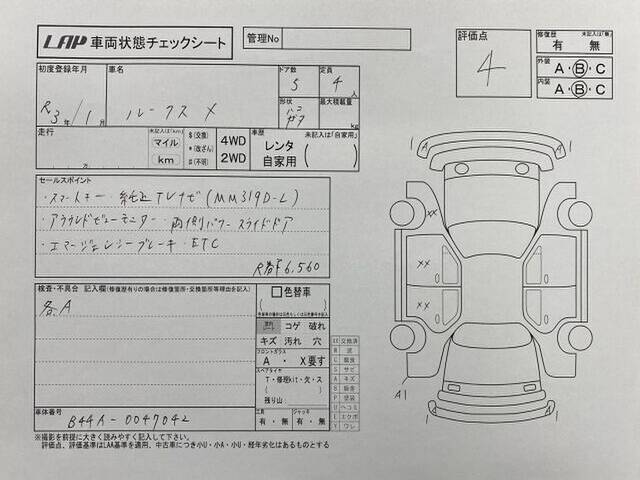 LAP 車両状態チェックシート
管理No
評価点
4
修復歴 未記入は「無」
有 ・ 無
外装
A・B・C
内装
A・B・C
初度登録年月
R3年/1月
車名
ルークス X
ドア数
5
定員
4人
形状
最大積載量
kg
走行
万
未記入は「km」
マイル
km
$(交換)
*(改ざん)
#(不明)
4WD
2WD
車歴 未記入は「自家用」
レンタ
自家用
( )
セールスポイント
・スマートキー ・純正TVナビ(MM319D-L)
・アラウンドビューモニター ・両側パワースライドドア
・エマージェンシーブレーキ ・ETC
R番下6,560
検査・不具合 記入欄(修復歴有りの場合は修復箇所・交換箇所等理由を記入)
各A
色替車
( )
コゲ 破れ
キズ 汚れ 穴
フロントガラス
A ・ X要す
スペアタイヤ
T・修理kit・欠・ス
( )
残り山
工具
有・無
ジャッキ
有・無
XX 交換済
W 波
C 腐食
S サビ
A キズ
B 板金
P 塗装
U ヘコミ
E エクボ
Y ワレ
車体番号
B44A-0047042
※撮影を前提に大きく読みやすく記入して下さい。
評価点、評価基準はLAA基準を適用、中古車につき小U・小A・小U・経年劣化はあるものとする
1
1
XX
XX
XX
A1
1